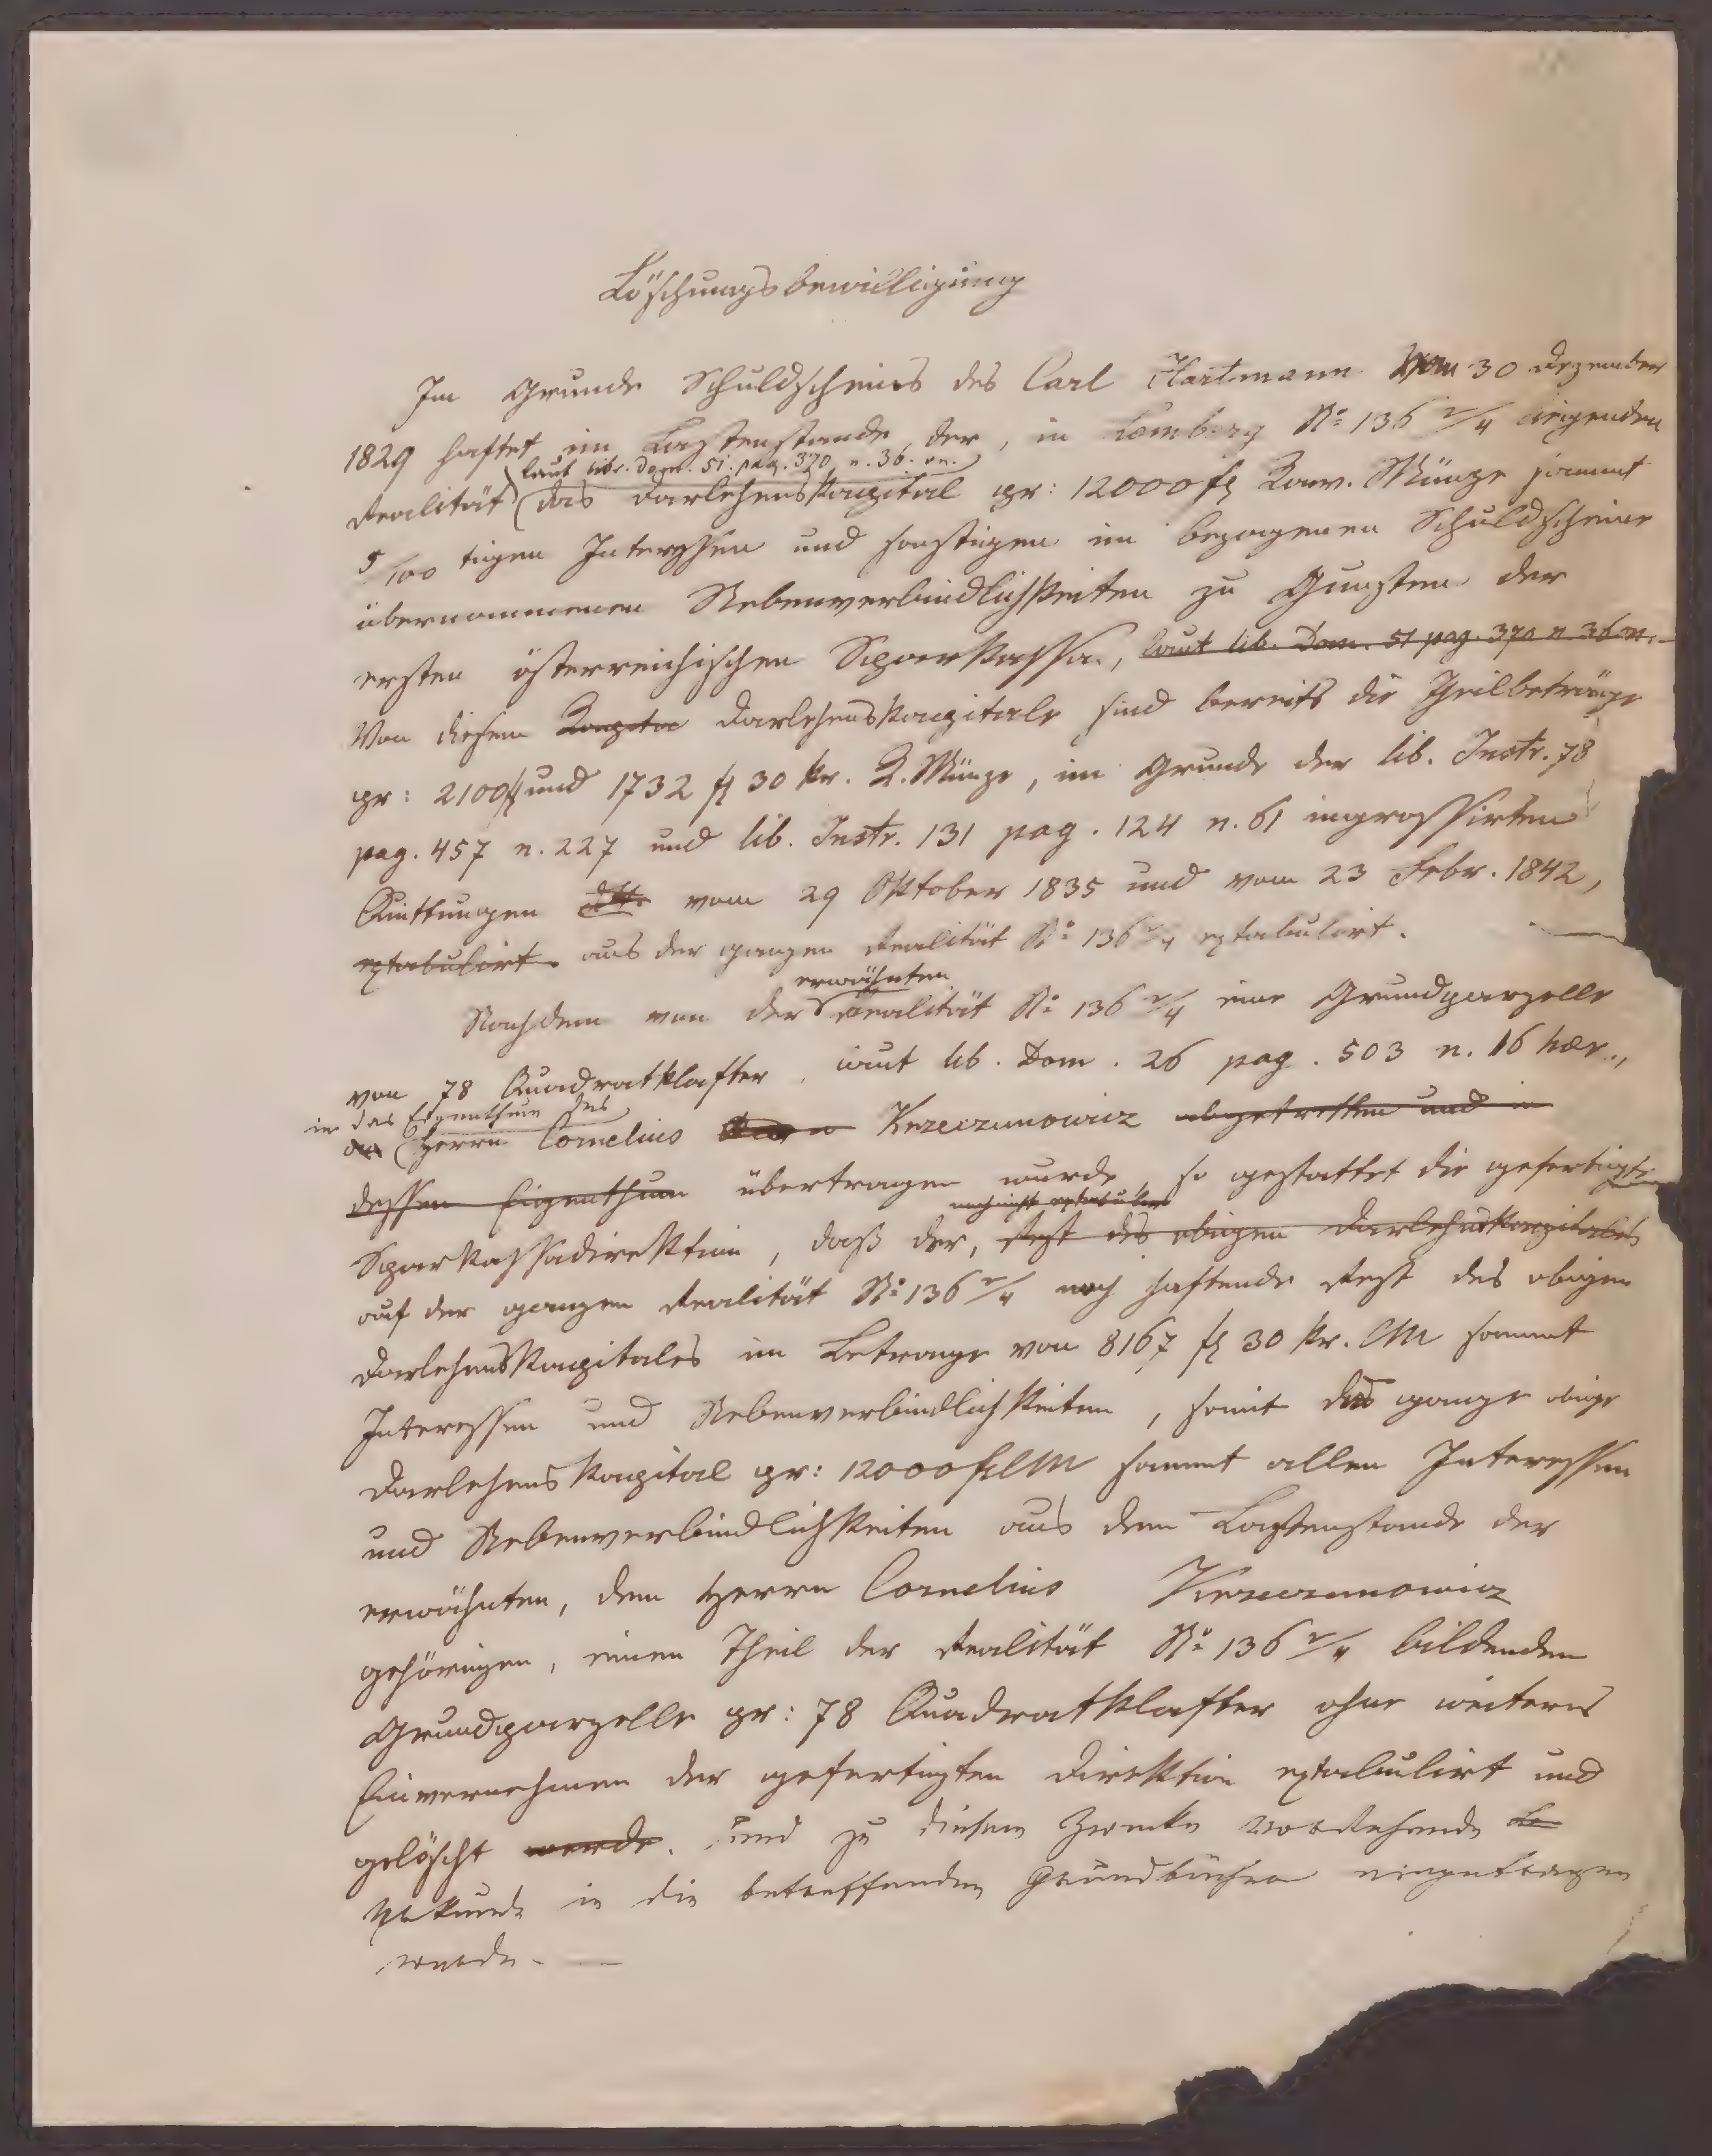 Löschungsbewilligung
Im Grunde Schuldscheines des Carl Hartmann vom 30 Dezember
1829 haftet im Lastenstande, der, in Lemberg No 136 2/4 liegenden
laut lib. Dom. 51. pag. 370 n. 36. on.
Realität das Darlehenskapital pr: 12000 fl Konv. Münze sammt
5/100 tigen Interessen und sonstigen im bezogenen Schuldscheine
übernommenen Nebenverbindlichkeiten zu Gunsten der
ersten österreichischen Sparkassa, laut lib. Dom. 51 pag. 370 n 36 on.
Von diesem Kapita Darlehenskapitale sind bereits die Theilbeträge
pr: 2100 fl und 1732 fl 30 kr. K. Münze, im Grunde der lib. Instr. 78
pag. 457 n. 227 und lib. Instr. 131 pag. 124 n. 61 ingrossirten
Quittungen dtto vom 29 Oktober 1835 und vom 23 Febr. 1842,
extabulirt. aus der ganzen Realität No 136 2/4 extabulirt.
erwähnten
Nachdem von der Realität No 136 2/4 eine Grundparzelle
von 78 Quadratklafter, laut lib. Dom. 26 pag. 503 n. 16 haer.,
in das Eigenthum des
an Herrn Cornelius Krzeczunowicz abgetretten und in
dessen Eigenthum übertragen wurde, so gestattet die gefertigte
noch nicht extabulirte
Sparkassadirektion, daß der, Rest des obigen Darlehenskapitales
auf der ganzen Realität No 136 2/4 noch haftende Rest des obigen
Darlehenskapitales im Betrage von 8167 fl 30 kr. CM sammt
Interessen und Nebenverbindlichkeiten, somit das ganze obige
Darlehenskapital pr: 12000 fl CM sammt allen Interessen
und Nebenverbindlichkeiten aus dem Lastenstande der
erwähnten, dem Herrn Cornelius Krzeczunowicz
gehörigen, einen Theil der Realität No 136 2/4 bildenden
Grundparzelle pr: 78 Quadratklafter ohne weiteres
Einvernehmen der gefertigten Direktion extabulirt und
gelöscht werde. und zu diesem Zwecke vorstehende
Urkunde in die betreffenden Grundbücher eingetragen
werde. —